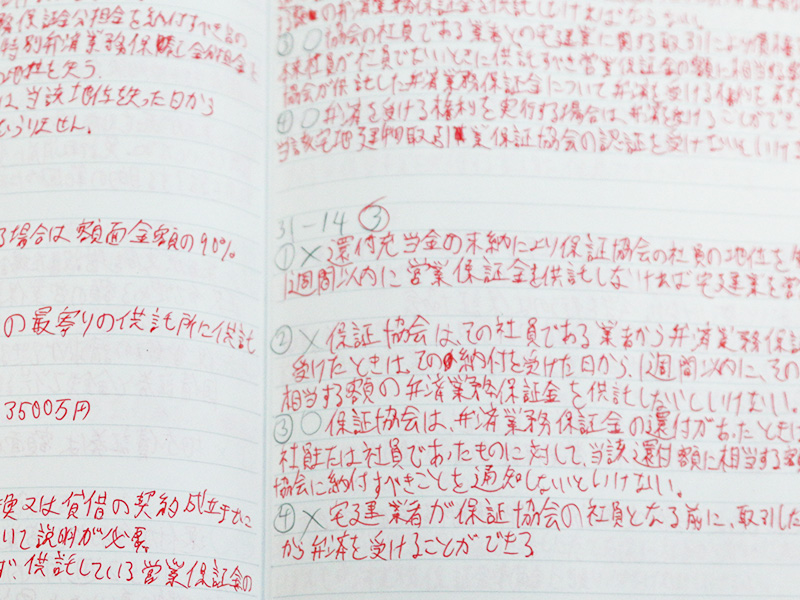 務保証金分担金を納付すべき旨の
特別弁済業務保証金分担金を
の地位を失う.
は、当該地位を失った日から
なりません。
場合は額面金額の90%
の最寄りの供託所に供託
3500万円
換又は貸借の契約成立までに
いて説明が必要.
ず、供託している営業保証金の
の弁済業務保証金を供託しなければならない。
③ ○ 協会の社員である業者との宅建業に関する取引により債権
社員が社員でないときに供託すべき営業保証金の額に相当する
協会が供託した弁済業務保証金について弁済を受ける権利を有
④ ○ 弁済を受ける権利を実行する場合は、弁済を受けることができ
当該宅地建物取引業保証協会の認証を受けないといけ
31-14 ③
① × 還付充当金の未納により保証協会の社員の地位を
12週間以内に営業保証金を供託しなければ宅建業を
② × 保証協会は、その社員である業者から弁済業務保証
受けたときは、その納付を受けた日から、12週間以内に、その
相当する額の弁済業務保証金を供託しないといけない。
③ ○ 保証協会は、弁済業務保証金の還付があったときは
社員または社員であったものに対して、当該還付額に相当する
協会に納付すべきことを通知しないといけない。
④ × 宅建業者が保証協会の社員となる前に、取引した
から弁済を受けることができる